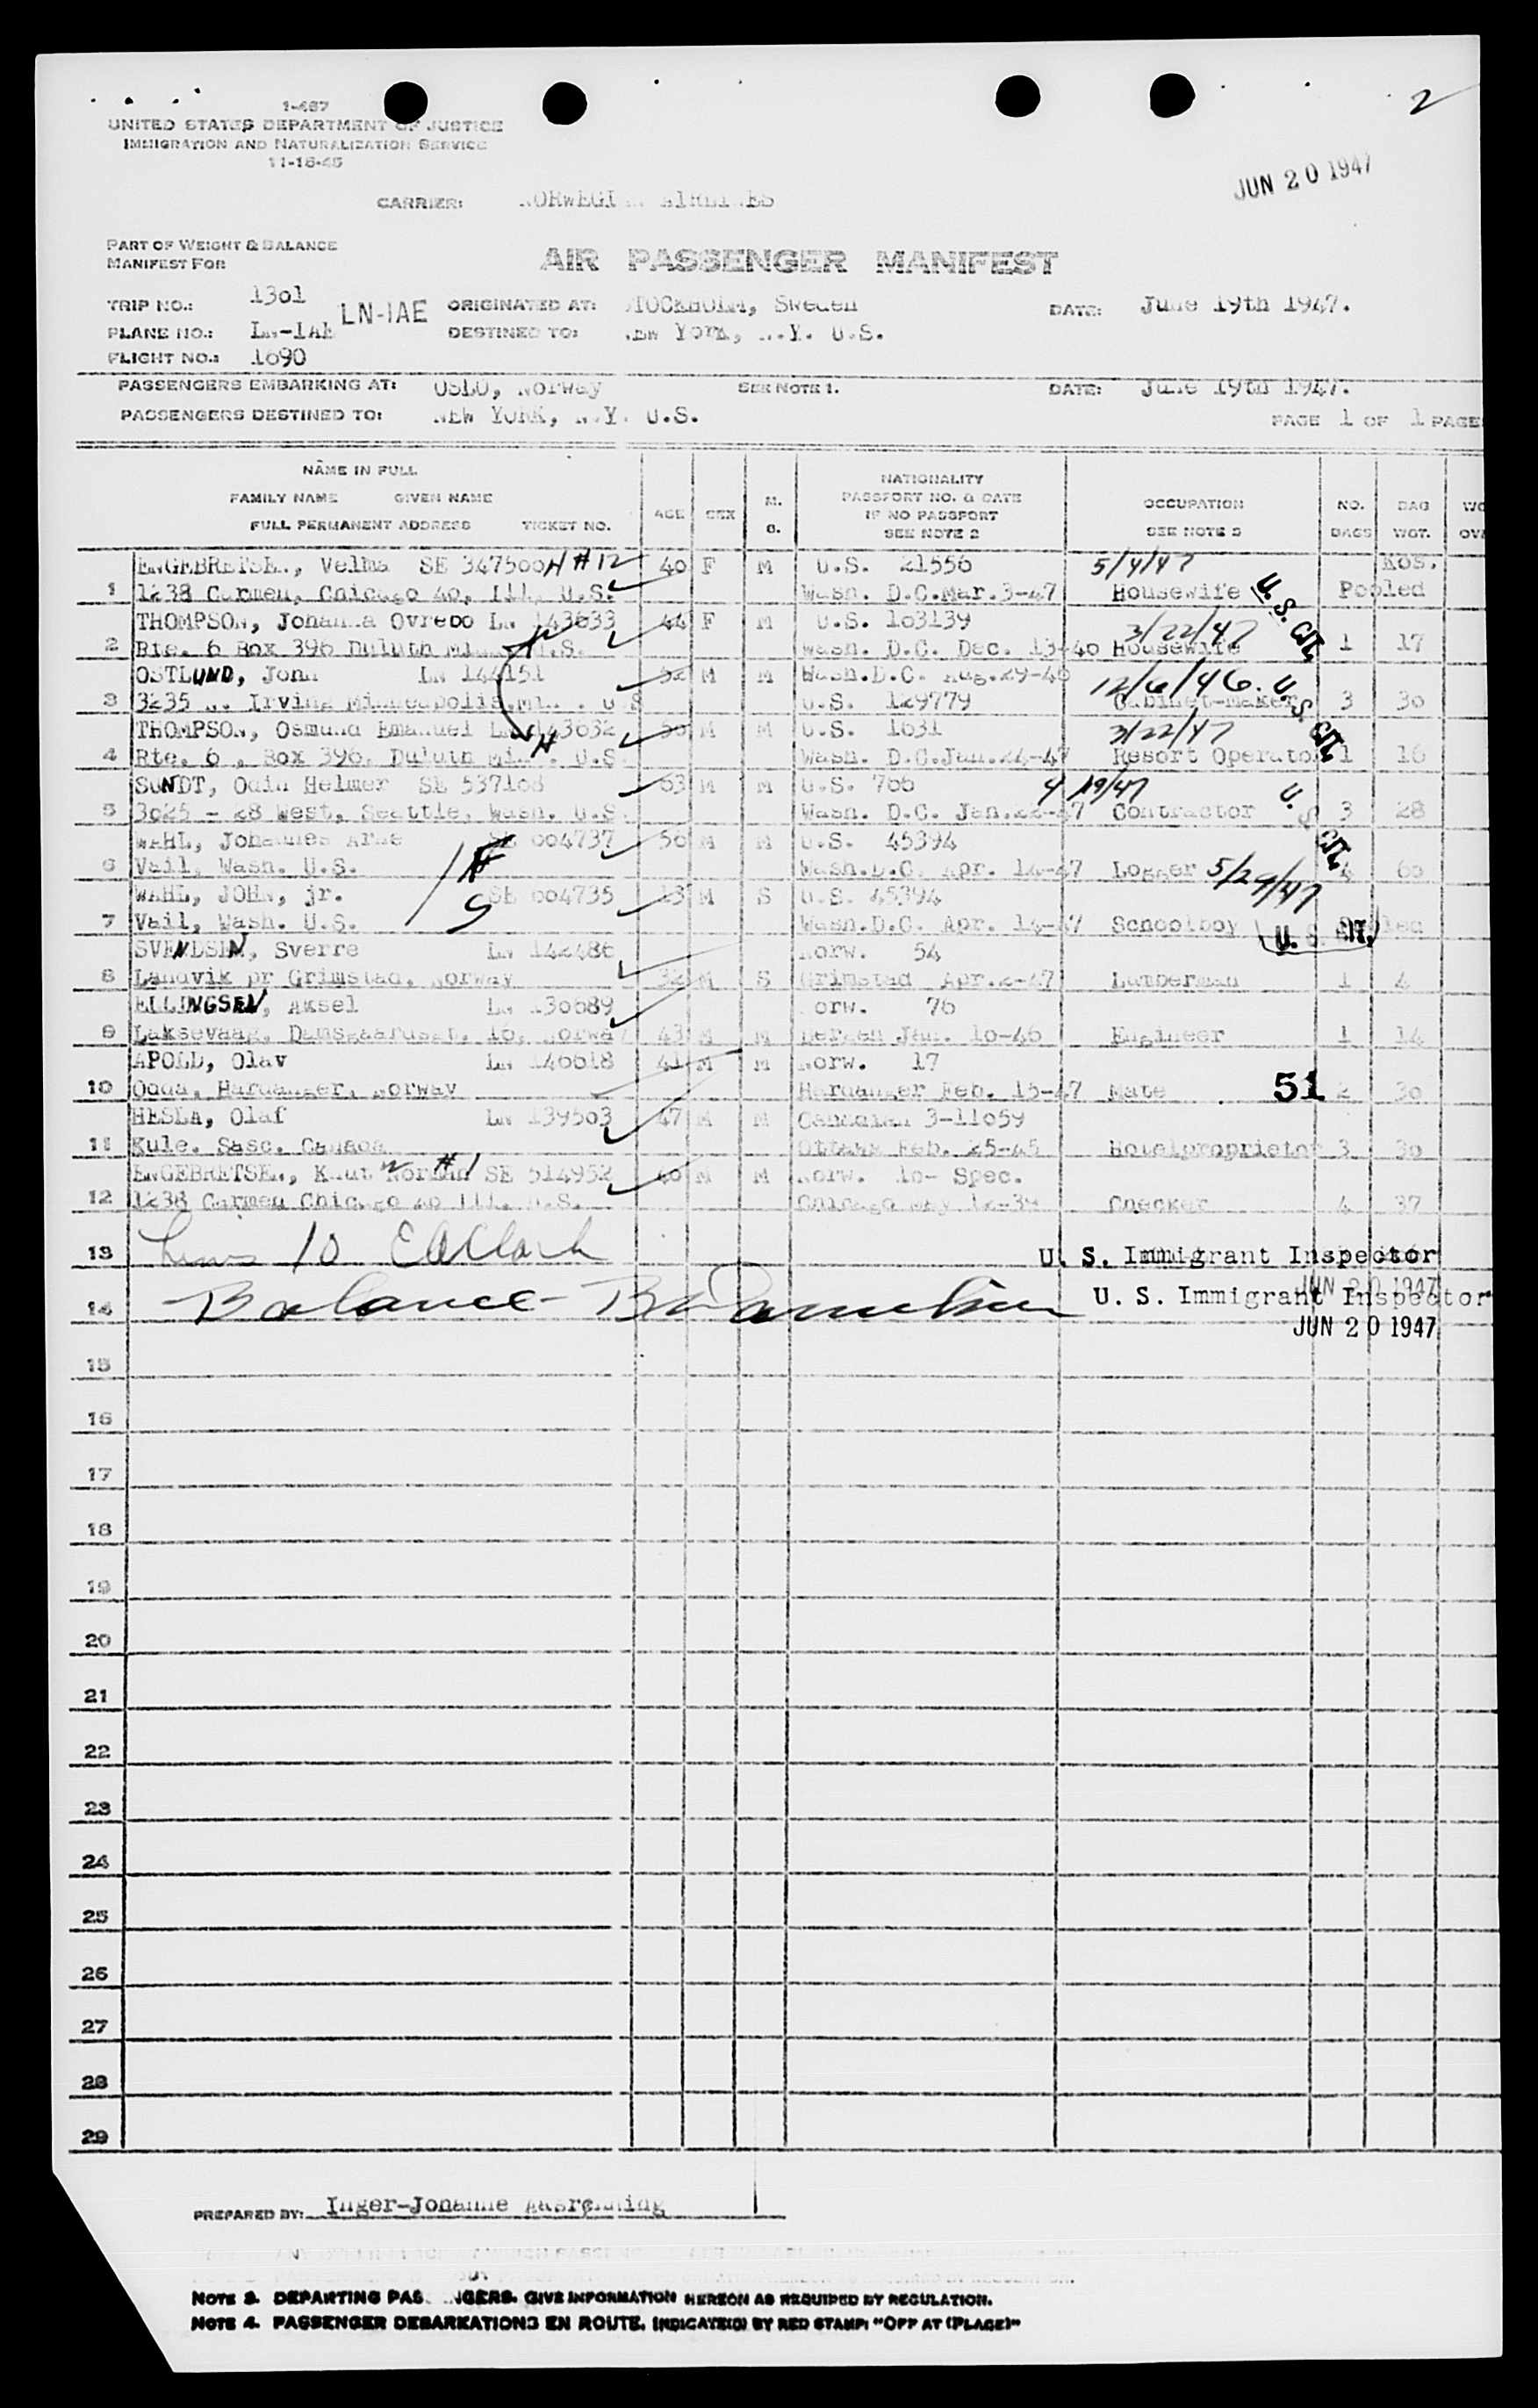 2
1-467
UNITED STATES DEPARTMENT OF JUSTICE
IMMIGRATION AND NATURALIZATION SERVICE
11-16-45
JUN 20 1947
CARRIER:
PART OF WEIGHT & BALANCE
MANIFEST FOR
AIR PASSENGER MANIFEST
TRIP NO.: 1301 LN-IAE ORIGINATED AT: STOCKHOLM, Sweden DATE: June 19th 1947.
PLANE NO.: LN-IAE DESTINED TO: New York, N.Y. U.S.
FLIGHT NO.: 1690
PASSENGERS EMBARKING AT: OSLO, Norway SEE NOTE 1. DATE: June 19th 1947.
PASSENGERS DESTINED TO: NEW YORK, N.Y. U.S. PAGE 1 OF 1 PAGE
NAME IN FULL
FAMILY NAME GIVEN NAME
FULL PERMANENT ADDRESS TICKET NO. AGE SEX M. S. NATIONALITY PASSPORT NO. & DATE IF NO PASSPORT SEE NOTE 2 OCCUPATION SEE NOTE 3 NO. BAGS BAG WGT.
ENGEBRETSEN, Velma SE 347500 H #12 40 F M U.S. 21556 5/4/47 Kos.
1 1238 Carmen, Chicago 40, Ill. U.S. Wash. D.C. Mar.3-47 Housewife U.S. CIT. Pooled
THOMPSON, Johanna Ovrebo LN 143633 44 F M U.S. 163139 3/22/47
2 Rte. 6 Box 396 Duluth U.S. Wash. D.C. Dec. 13-40 Housewife 1 17
OSTLUND, John LN 144151 52 M M Wash.D.C. Aug.29-46 12/6/46.
3 3235 N. Irving Minneapolis, U.S. 129779 Cabinet-Maker U.S. CIT. 3 30
THOMPSON, Osmund Emanuel LN 143632 50 M M U.S. 1631 3/22/47
4 Rte. 6, Box 396, Duluth U.S. Wash. D.C. Jan.24-47 Resort Operator 1 16
SUNDT, Odin Helmer SE 537168 63 M M U.S. 766 4/19/47
5 3025 - 28 West, Seattle, Wash. U.S. Wash. D.C. Jan.22-47 Contractor U.S. CIT. 3 28
WAHL, Johannes Arne SE 604737 50 M M U.S. 45394
6 Vail, Wash. U.S. Wash.D.C. Apr. 14-47 Logger 5/29/47 4 60
WAHL, JOHN, jr. SE 604735 13 M S U.S. 45394
7 Vail, Wash. U.S. Wash.D.C. Apr. 14-47 Schoolboy U.S. CIT.
SVENDSEN, Sverre LN 142486 Norw. 54
8 Landvik pr Grimstad, Norway 32 M S Grimstad Apr.2-47 Lumberman 1 4
ELLINGSEN, Aksel LN 130689 Norw. 76
9 Laksevaag, Damsgaardsst. 10, Norway 43 M M Bergen Jan. 10-46 Engineer 1 14
APOLD, Olav LN 146618 41 M M Norw. 17
10 Odda, Hardanger, Norway Hardanger Feb. 15-47 Mate 51 2 30
HESLA, Olaf LN 139503 47 M M Canadian 3-11059
11 Kyle. Sasc. Canada Ottawa Feb. 25-45 Hotelproprietor 3 30
ENGEBRETSEN, Knut Norman #1 SE 514952 40 M M Norw. 10- Spec.
12 1238 Carmen Chicago 40 Ill. U.S. Chicago May 12-39 Checker 4 37
13 Lines 10 U. S. Immigrant Inspector
JUN 20 1947
14 Balance U. S. Immigrant Inspector
JUN 20 1947
15
16
17
18
19
20
21
22
23
24
25
26
27
28
29
PREPARED BY: Inger-Johanne
NOTE 3. DEPARTING PASSENGERS. GIVE INFORMATION HEREON AS REQUIRED BY REGULATION.
NOTE 4. PASSENGER DEBARKATIONS EN ROUTE, INDICATE(D) BY RED STAMP: "OFF AT (PLACE)"